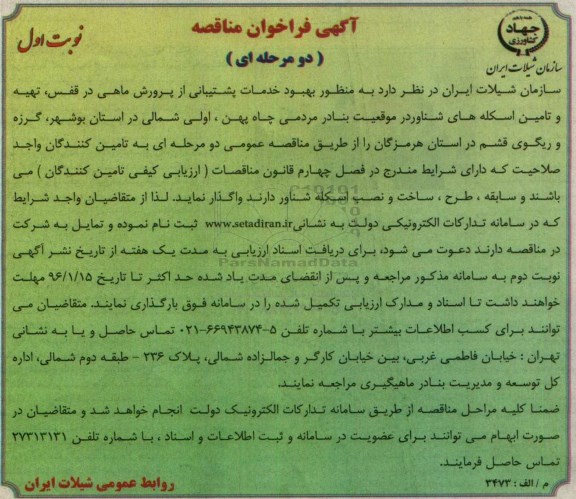 آگهی فراخوان مناقصه
( دو مرحله ای )
نوبت اول
همه با هم
جهاد
کشاورزی
سازمان شیلات ایران
سازمان شیلات ایران در نظر دارد به منظور بهبود خدمات پشتیبانی از پرورش ماهی در قفس، تهیه
و تامین اسکله های شناوردر موقعیت بنادر مردمی چاه پهن ، اولی شمالی در استان بوشهر، گرزه
و ریگوی قشم در استان هرمزگان را از طریق مناقصه عمومی دو مرحله ای به تامین کنندگان واجد
صلاحیت که دارای شرایط مندرج در فصل چهارم قانون مناقصات ( ارزیابی کیفی تامین کنندگان ) می
باشند و سابقه ، طرح ، ساخت و نصب اسکله شناور دارند واگذار نماید. لذا از متقاضیان واجد شرایط
که در سامانه تدارکات الکترونیکی دولت به نشانیwww.setadiran.ir ثبت نام نموده و تمایل به شرکت
در مناقصه دارند دعوت می شود، برای دریافت اسناد ارزیابی به مدت یک هفته از تاریخ نشر آگهی
نوبت دوم به سامانه مذکور مراجعه و پس از انقضای مدت یاد شده حد اکثر تا تاریخ ۹۶/۱/۱۵ مهلت
خواهند داشت تا اسناد و مدارک ارزیابی تکمیل شده را در سامانه فوق بارگذاری نمایند. متقاضیان می
توانند برای کسب اطلاعات بیشتر با شماره تلفن ۵-۶۶۹۴۳۸۷۴-۰۲۱ تماس حاصل و یا به نشانی
تهران : خیابان فاطمی غربی، بین خیابان کارگر و جمالزاده شمالی، پلاک ۲۳۶ - طبقه دوم شمالی، اداره
کل توسعه و مدیریت بنادر ماهیگیری مراجعه نمایند.
ضمنا کلیه مراحل مناقصه از طریق سامانه تدارکات الکترونیک دولت انجام خواهد شد و متقاضیان در
صورت ابهام می توانند برای عضویت در سامانه و ثبت اطلاعات و اسناد ، با شماره تلفن ۲۷۳۱۳۱۳۱
تماس حاصل فرمایند.
م / الف : ۳۴۷۳
روابط عمومی شیلات ایران
ParsNamadData